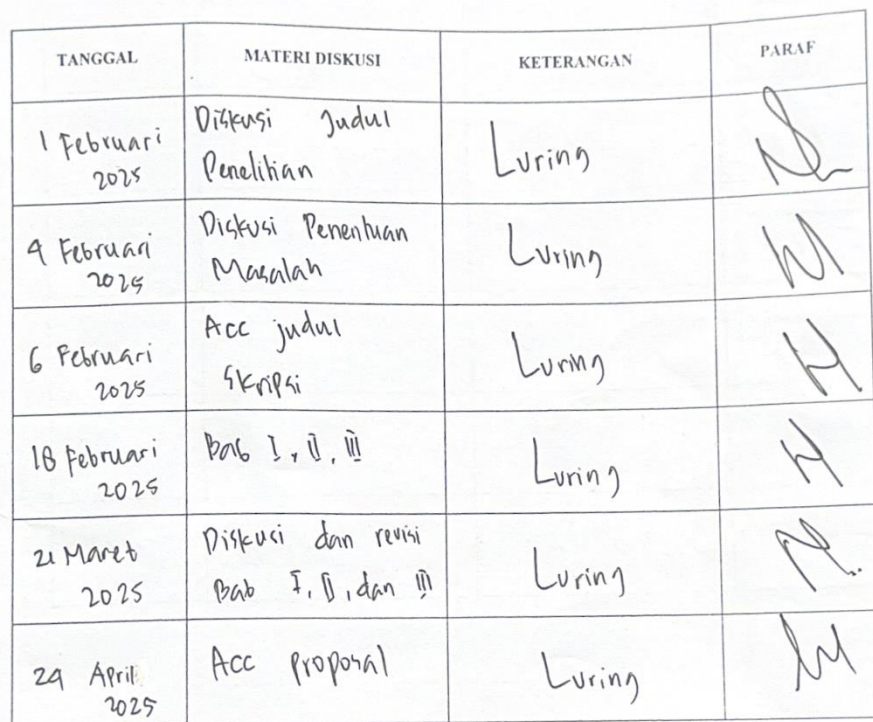 TANGGAL MATERI DISKUSI KETERANGAN PARAF
1 Februari 2025 Diskusi Judul Penelitian Luring
4 Februari 2025 Diskusi Penentuan Masalah Luring
6 Februari 2025 Acc judul Skripsi Luring
18 Februari 2025 Bab I, II, III Luring
21 Maret 2025 Diskusi dan revisi Bab I, II, dan III Luring
24 April 2025 Acc proposal Luring